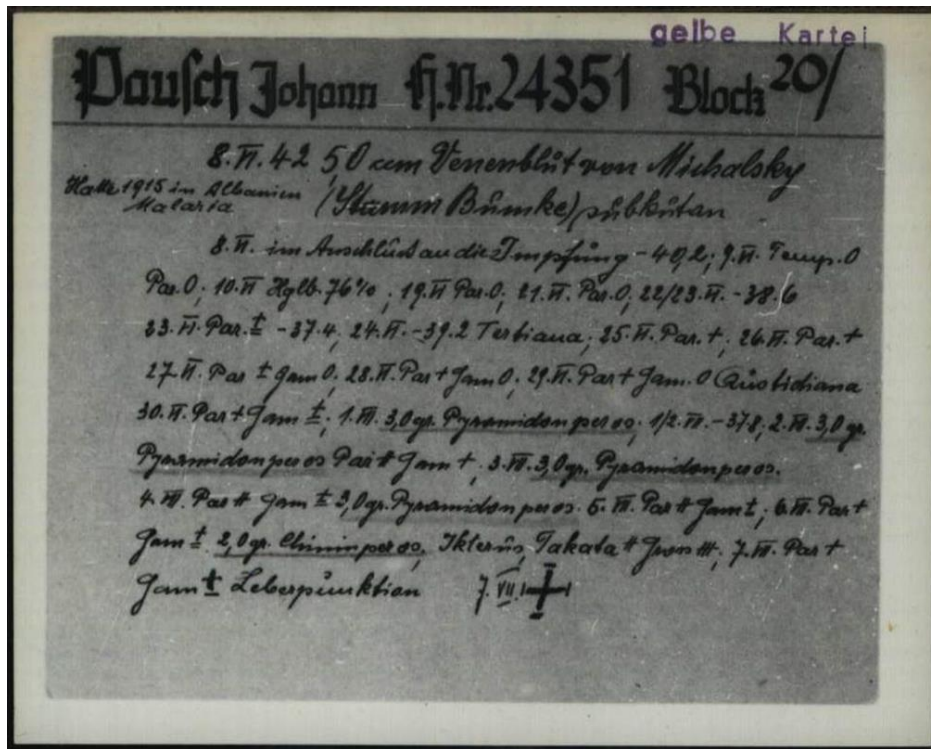 gelbe Kartei
Pausch Johann H.Nr. 24351 Block 20/
8.VI.42 5,0 ccm Venenblut von Michalsky
Hatte 1915 in Albanien (Stamm Bumke) subkutan
Malaria
8.VI. im Anschluss an die Impfung -40,2; 9.VI. Temp.0
Par.0; 10.VI Hglb. 76%; 19.VI Par.0; 21.VI. Par.0; 22/23.VI. -38.6
23.VI. Par.± -37.4; 24.VI. -39.2 Tertiana; 25.VI. Par.+; 26.VI. Par.+
27.VI. Par ± Gam 0; 28.VI. Par + Gam 0; 29.VI. Par + Gam. 0 Quotidiana
30.VI. Par + Gam ±; 1.VII. 3,0 gr. Pyramidon per os; 1/2.VII. -37.8; 2.VII. 3,0 gr.
Pyramidon per os Par ++ Gam +. 3.VII. 3,0 gr. Pyramidon per os.
4.VII. Par ++ Gam ± 3,0 gr. Pyramidon per os. 5.VII. Par ++ Gam ±; 6.VII. Par +
Gam ± 2,0 gr. Chinin per os, Ikterus, Takata ++ Gross +++; 7.VII. Par +
Gam ± Leberpunktion 7.VII. ✝